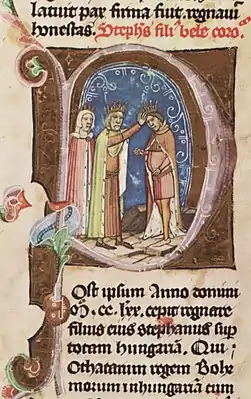 latur par firma fuit. regnaui
honestas. Stephs fili bele coro.
Ost ipsum Anno domini
m̊. cc. lxx. cepit regnare
filius eius stephanus sup
totam hungariā. Qui
Othacarum regem Bohe
morum in hungariā cum